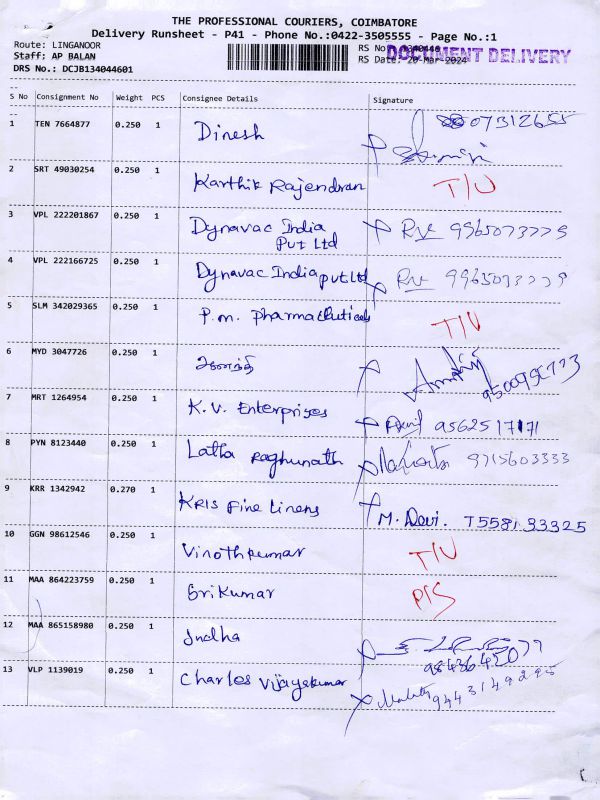 THE PROFESSIONAL COURIERS, COIMBATORE
Delivery Runsheet - P41 - Phone No.:0422-3505555 - Page No.:1
Route: LINGANOOR
Staff: AP BALAN
DRS No.: DCJB134044601
RS No
RS Date: 20-Mar-2024
DOCUMENT DELIVERY
S No Consignment No Weight PCS Consignee Details Signature
1 TEN 7664877 0.250 1 Dinesh 07312655
2 SRT 49030254 0.250 1 Karthik Rajendran T/U
3 VPL 222201867 0.250 1 Dynavac India
Pvt Ltd
4 VPL 222166725 0.250 1 Dynavac India pvt Ltd
5 SLM 342029365 0.250 1 P.m. Pharmaceuticals T/U
6 MYD 3047726 0.250 1
7 MRT 1264954 0.250 1 K.V. Enterprises 9562517171
8 PYN 8123440 0.250 1 Latha Raghunath 9715603333
9 KRR 1342942 0.270 1 KRIS Fine Linens M. Devi. T558133325
10 GGN 98612546 0.250 1 Vinothkumar T/U
11 MAA 864223759 0.250 1 Srikumar P/S
12 MAA 865158980 0.250 1 Indha
13 VLP 1139019 0.250 1 Charles Vijayakumar 9443149295